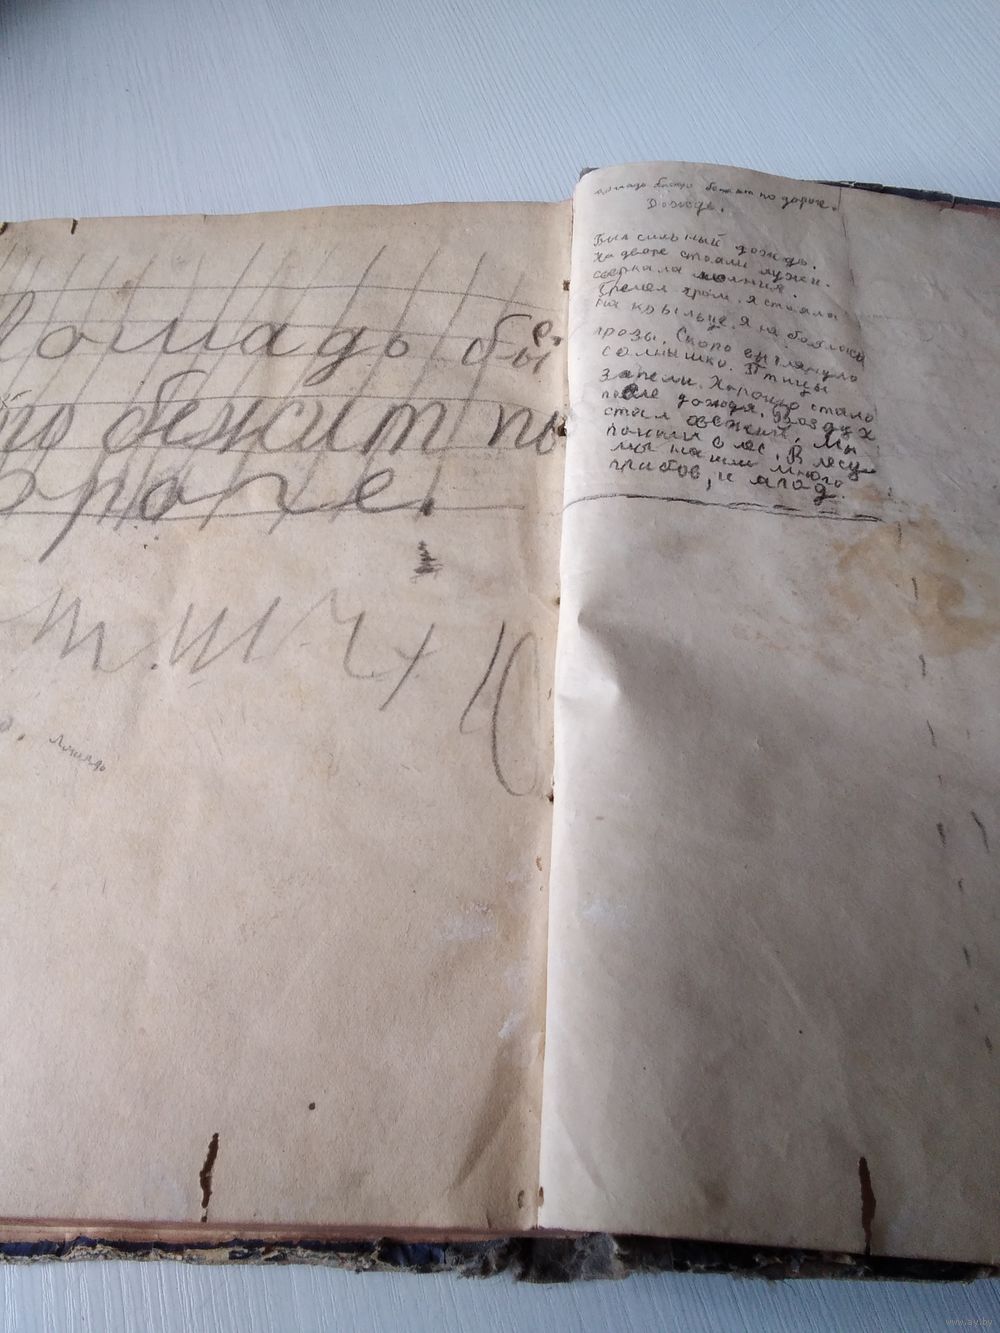 Лошадь бы
бежит по
ороге.
лошадь
лошадь быстро бежит по дороге.
Дождь.
Был сильный дождь.
На дворе стояли лужи.
сверкала молния.
Гремел гром. я стояла
на крыльце. Я не боялась
грозы. Скоро выглянуло
солнышко. Птицы
запели. Хорошо стало
после дождя. Воздух
стал свежий. Мы
пошли в лес. В лесу
мы нашли много
грибов, и ягод.
www.ay.by